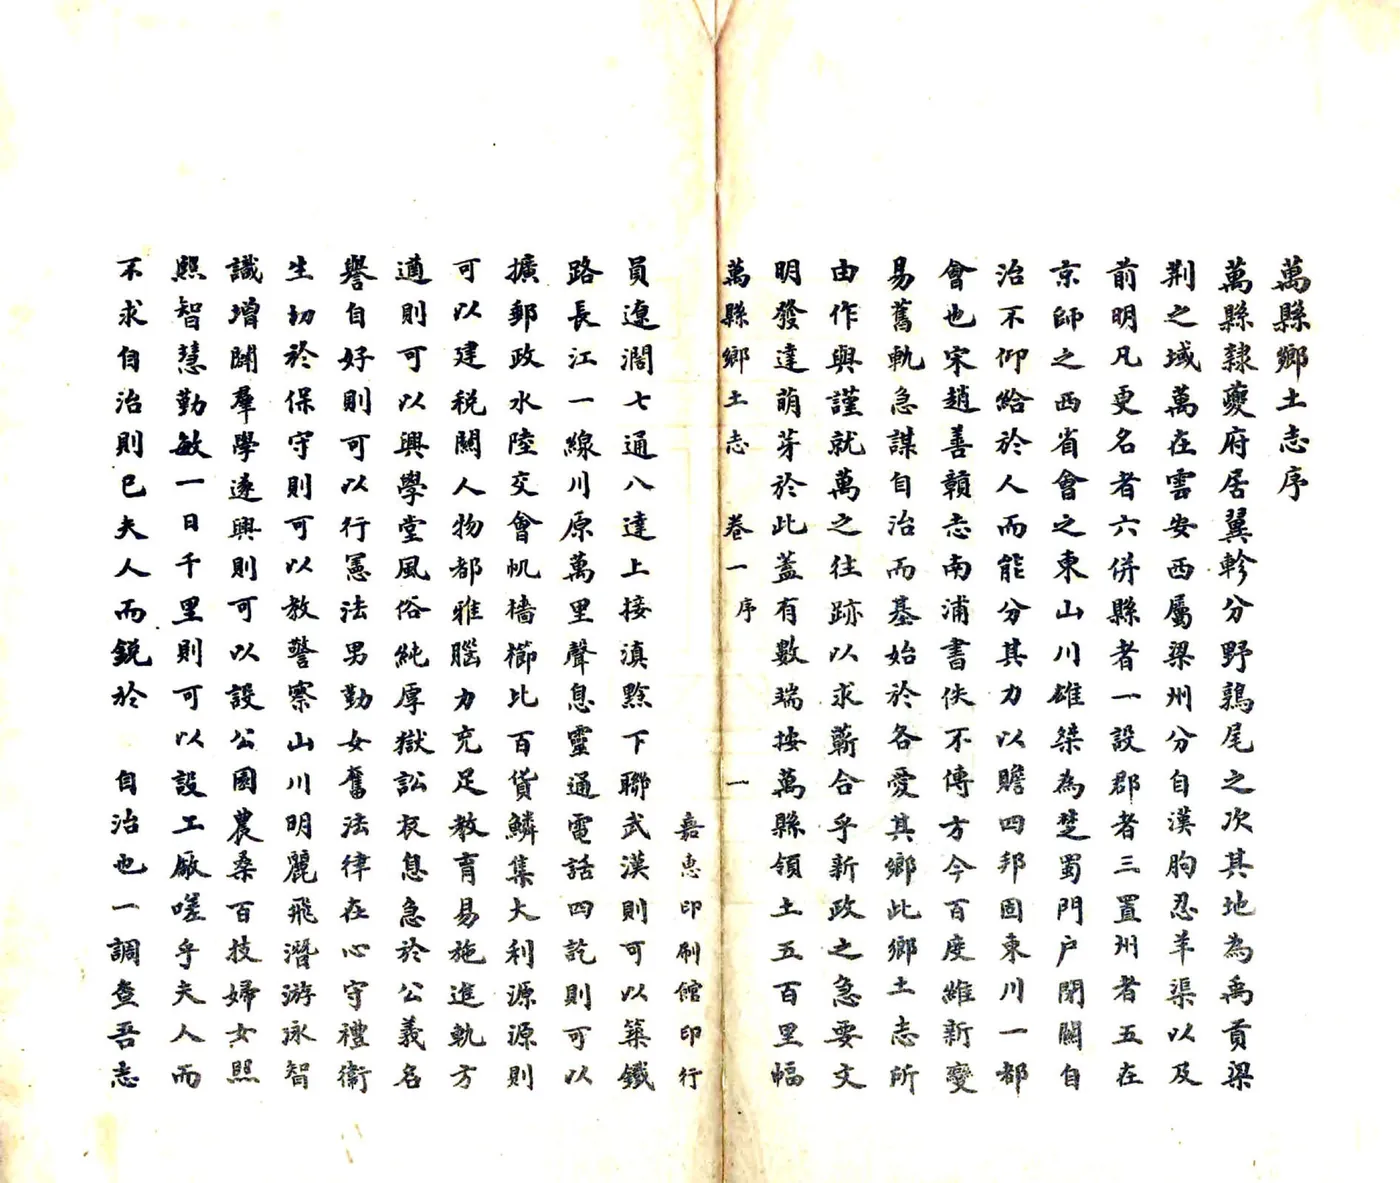 萬縣鄉土志序
萬縣隸夔府居翼軫分野鶉尾之次其地為禹貢梁
荆之域萬在雲安西屬梁州分自漢朐忍羊渠以及
前明凡更名者六併縣者一設郡者三置州者五在
京師之西省會之東山川雄桀為楚蜀門户閉關自
治不仰給於人而能分其力以贍四邦固東川一都
會也宋趙善贛志南浦書佚不傳方今百度維新變
易舊軌急謀自治而基始於各愛其鄉此鄉土志所
由作與謹就萬之往跡以求蘄合乎新政之急要文
明發達萌芽於此蓋有數端按萬縣領土五百里幅
萬縣鄉土志 卷一 序 一
嘉惠印刷館印行
員遼濶七通八達上接滇黔下聯武漢則可以築鐵
路長江一線川原萬里聲息靈通電話四訖則可以
擴郵政水陸交會帆檣櫛比百貨鱗集大利源源則
可以建税關人物都雅腦力充足教育易施進軌方
遒則可以興學堂風俗純厚獄訟衰息急於公義名
譽自好則可以行憲法男勤女奮法律在心守禮衛
生切於保守則可以教警察山川明麗飛潛游泳智
識增闢羣學遂興則可以設公園農桑百技婦女熙
熙智慧勤敏一日千里則可以設工廠嗟乎夫人而
不求自治則已夫人而鋭於 自治也一調查吾志